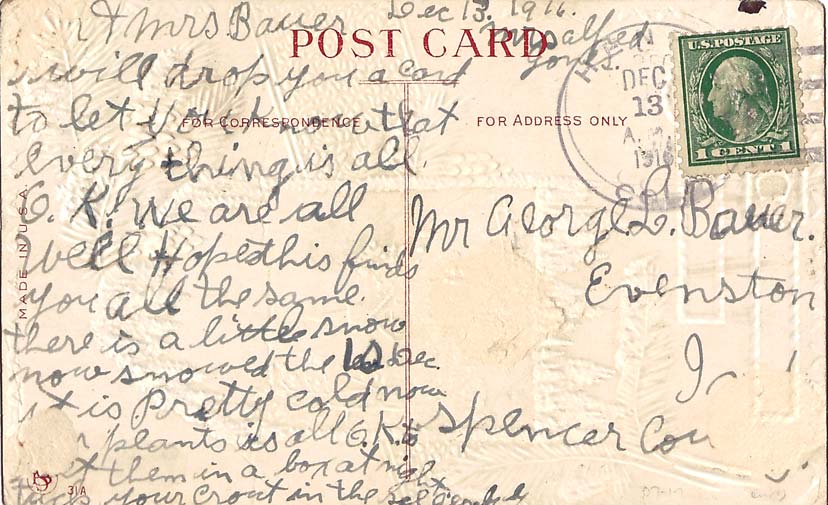 & Mrs Bauer Dec 13. 1916.
POST CARD
Mrs alfred
yours.
i will drop you a card
to let you know that
FOR CORRESPONDENCE
every thing is all.
O. K! We are all
well Hope this finds
you all the same.
there is a little snow
now snowed the Dec.
it is Pretty cold now
plants is all O.K. to
them in a box at night
your crout in the
MADE IN U.S.A.
31A
FOR ADDRESS ONLY
DEC
13
1916
U.S. POSTAGE
1 CENT 1
Mr George L. Bauer.
Evenston
Spencer Cou